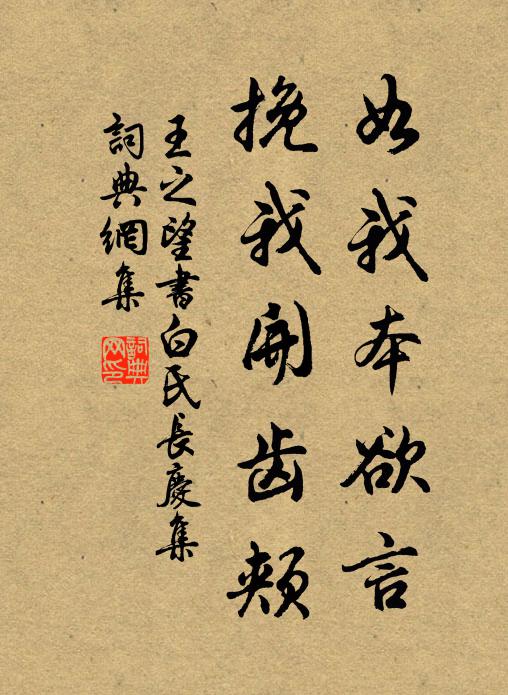 如我本欲言
挽我開齒頰
王之望書白氏長慶集
詞典網集
詞典
网印